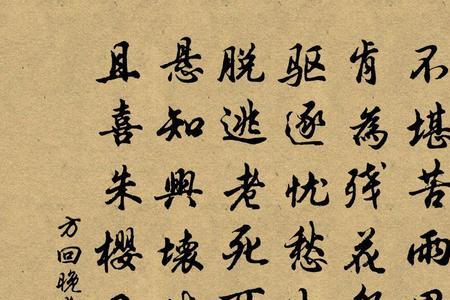 不堪苦雨
肯為残花
驱逐忧愁
脱逃老死
悬知興壊
且喜朱樱
方回晚